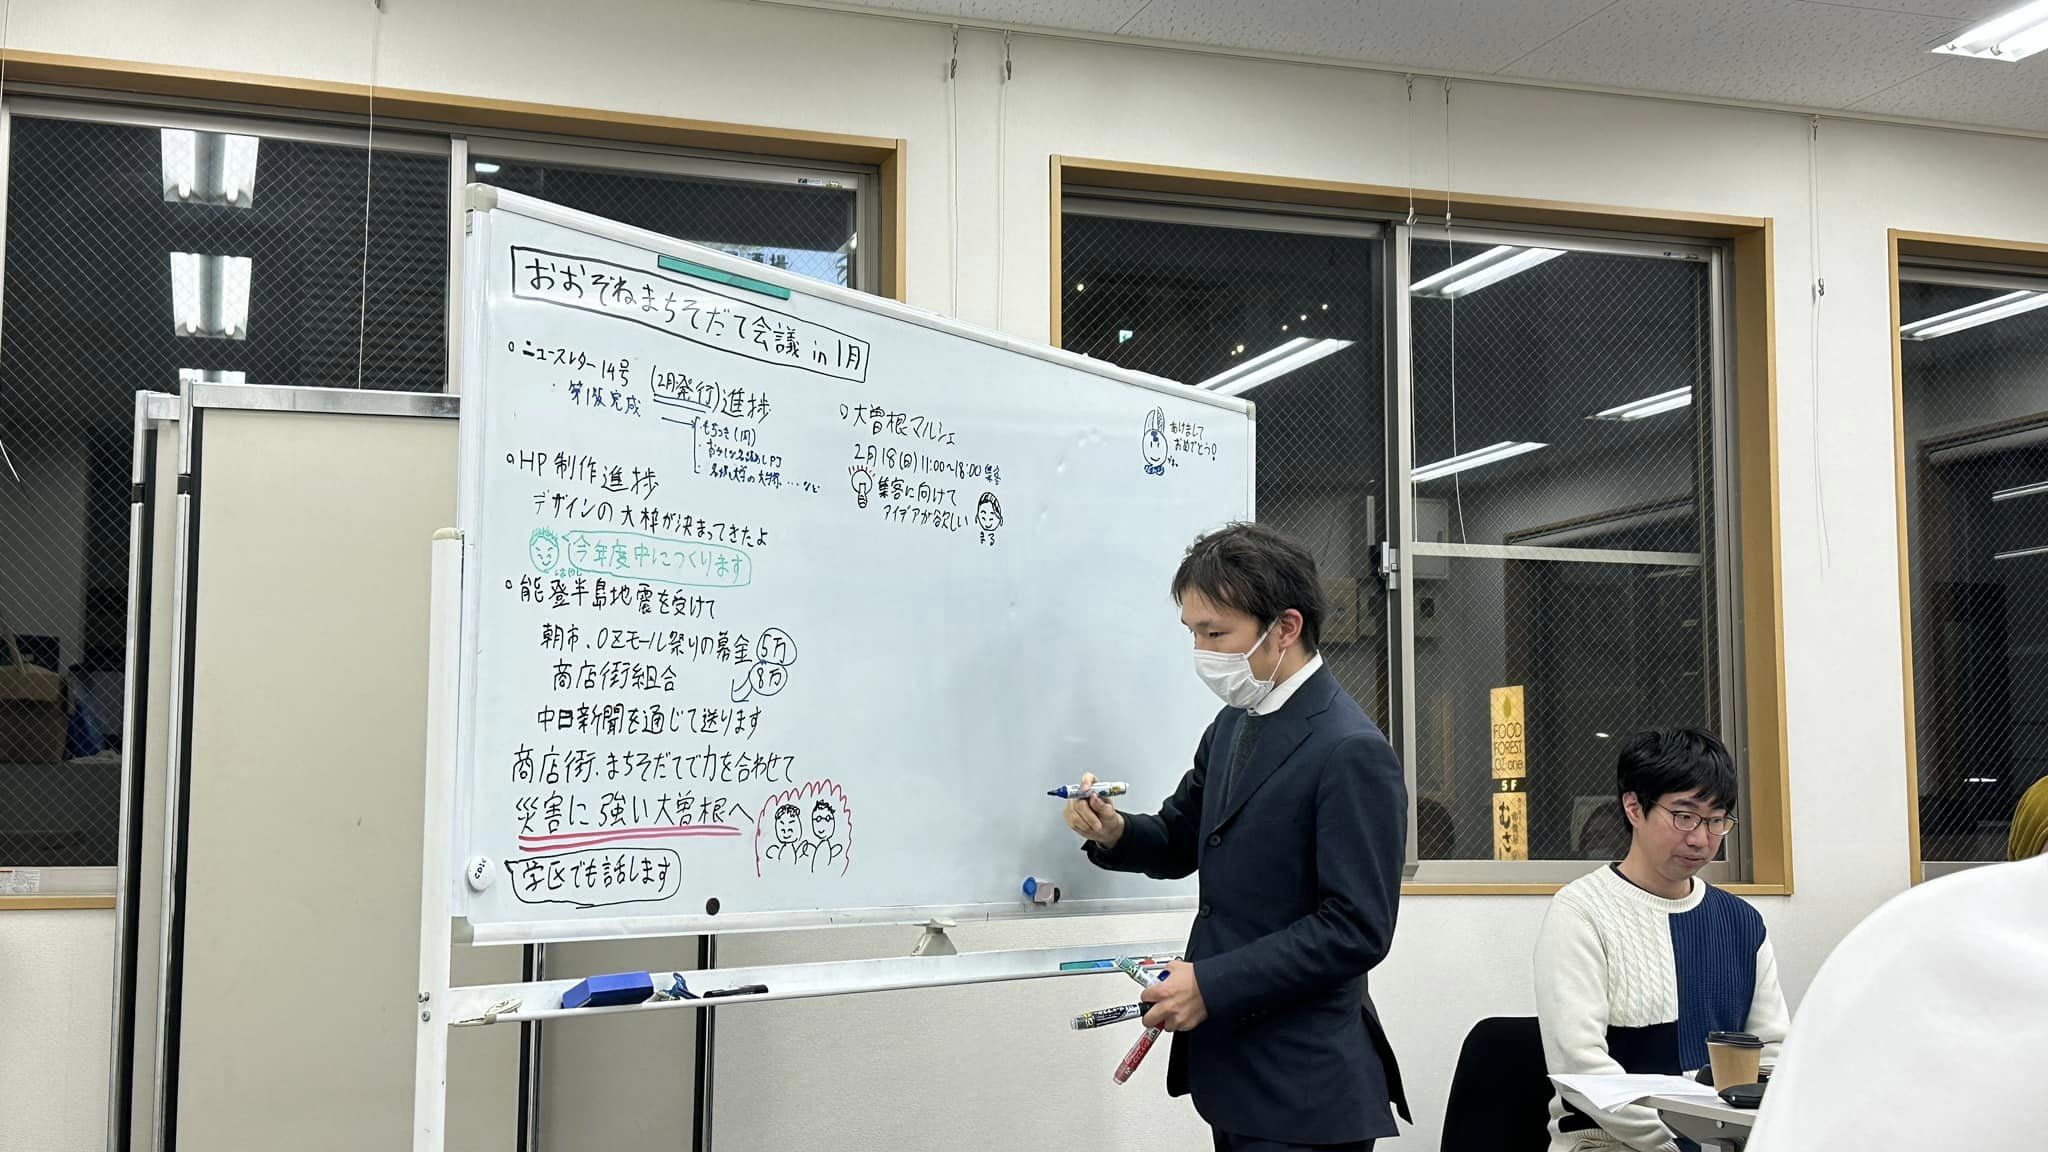 おおぞねまちそだて会議 in 1月
ニュースレター 14号 (2月発行)進捗
第1版完成
もちつき(1月)
HP 制作進捗
デザインの大枠が決まってきたよ
今年度中につくります
能登半島地震を受けて
朝市、OZモール祭りの募金 5万
商店街組合 8万
中日新聞を通じて送ります
商店街、まちそだてで力を合わせて
災害に強い大曽根へ
学区でも話します
大曽根マルシェ
2月18(日)11:00~18:00
集客に向けて
アイデアが欲しい
まる
あけまして
おめでとう!
FOOD
FOREST
OZ-one
5F